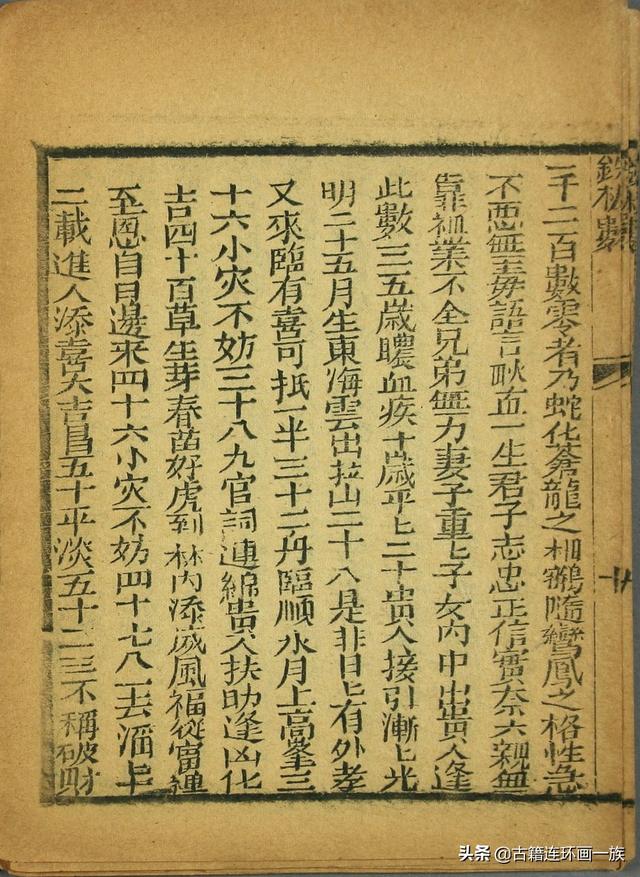 鐵板數
十八
一千二百數零者乃蛇化蒼龍之相鶴隨鸞鳳之格性急
不惡無至毒語言耿血一生君子志忠正信實奈六親無
靠祖業不全兄弟無力妻子重七子女內中出貴人逢
此數三五歲膿血疾十歲平七二十貴人接引漸七光
明二十五月生東海雲出拉山二十八是非日上有外孝
又來臨有喜可抵一半三十二舟臨順水月上高峯三
十六小灾不妨三十八九官詞連綿貴人扶助逢凶化
吉四十百草生芽春苗好虎到林內添威風福從富
至恩自日邊來四十六小灾不妨四十七八一去滔上十
二載進人添喜大吉昌五十平淡五十二三不稱破財
头条@古籍连环画一族